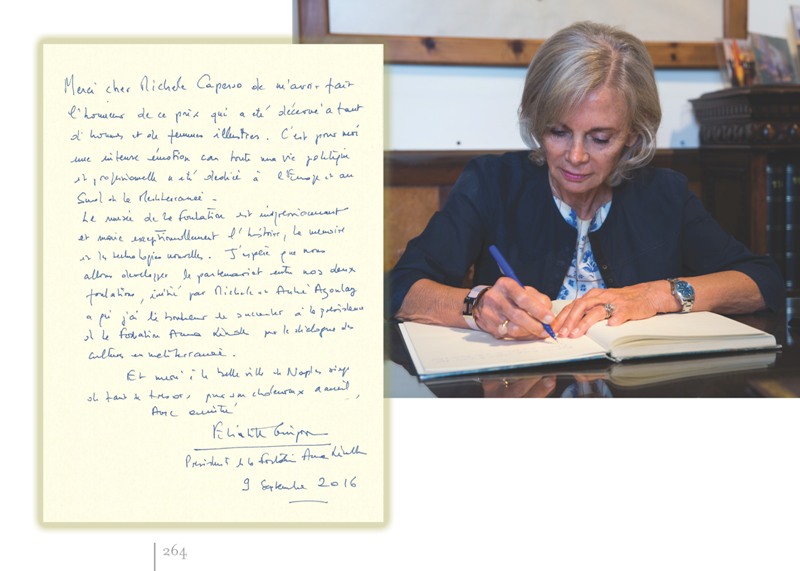 Merci cher Michele Capasso de m'avoir fait
l'honneur de ce prix qui a été décerné à tant
d'hommes et de femmes illustres. C'est pour moi
une intense émotion car toute ma vie politique
et professionnelle a été dédiée à l'Europe et au
Sud de la Méditerranée.
Le musée de la Fondation est impressionnant
et marie exceptionnellement l'histoire, la mémoire
et les technologies nouvelles. J'espère que nous
allons développer le partenariat entre nos deux
fondations, initié par Michele et André Azoulay
à qui j'ai le bonheur de succéder à la présidence
de la Fondation Anna Lindh pour le dialogue des
cultures en méditerranée.
Et merci à la belle ville de Naples
de tant de trésors pour son chaleureux accueil
Avec amitié
Elisabeth Guigou
Présidente de la Fondation Anna Lindh
9 Septembre 2016
264